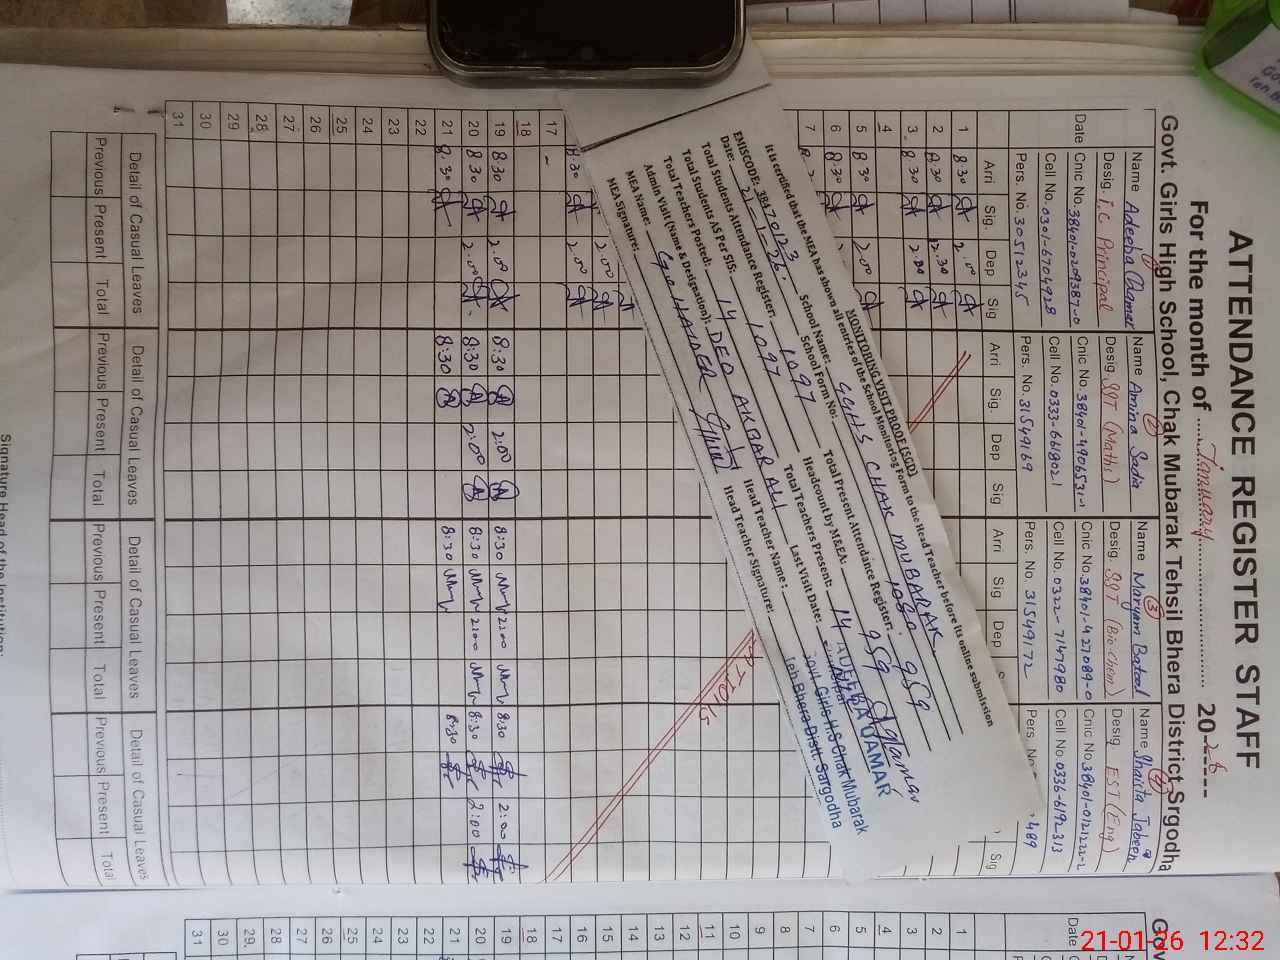 ATTENDANCE REGISTER STAFF
For the month of January 20 26
Govt. Girls High School, Chak Mubarak Tehsil Bhera District Srgodha
① ② ③ ④
Name Adeeba Qamar Name Amina Sadia Name Maryam Batool Name Shaista Jabeen
Desig. I.C. Principal Desig. SST (Maths) Desig. SST (Bio-Chem) Desig EST (Eng)
Date Cnic No. 38401-0209387-0 Cnic No. 38401-4906531-1 Cnic No. 38401-427089-0 Cnic No. 38401-0121222-2
Cell No. 0301-6704928 Cell No. 0333-6618021 Cell No. 0322-7147980 Cell No. 0336-6192313
Pers. No. 30512345 Pers. No. 31549169 Pers. No. 31549172 Pers. No. 489
Arri Sig. Dep Sig Arri Sig. Dep Sig Arri Sig Dep Sig
1 8 30 2.00
2 8.30 12.30
3 8 30 2.00
4
5 8 30 2.00
6 8 30
7
It is certified that the MEA has shown all entries of the School Monitoring Form to the Head Teacher before its online submission
MONITORING VISIT PROOF (SGD)
EMISCODE: 38470123 School Name: GGHS CHAK MUBARAK
Date: 21-1-26 School Form No: 1080
Total Students Attendance Register: 1097 Total Present Attendance Register: 959
Total Students AS Per SIS: 1097 Headcount by M&EA: 959
Total Teachers Posted: 14 Total Teachers Present: 14
Admin Visit (Name & Designation): DEO AKBAR ALI Last Visit Date:
MEA Name: G. HAIDER Head Teacher Name:
MEA Signature: Head Teacher Signature:
ADEEBA QAMAR
Principal
Govt. Girls H.S Chak Mubarak
Teh Bhera Distt. Sargodha
2.00
8.30 2.00
17 -
18
19 8 30 2.00 8:30 2:00 8:30 2:00 8:30 2:00
20 8 30 2.00 8:30 2:00 8:30 2:00 8:30 2:00
21 8.30 8:30 8:30 8:30
22
23
24
25
26
27
28
29
30
31
Detail of Casual Leaves Detail of Casual Leaves Detail of Casual Leaves Detail of Casual Leaves
Previous Present Total Previous Present Total Previous Present Total Previous Present Total
Signature Head of the Institution:
Date
1
2
3
4
5
6
7
8
9
10
11
12
13
14
15
16
17
18
19
20
21
22
23
24
25
26
27
28
29
30
31
21-01-26 12:32